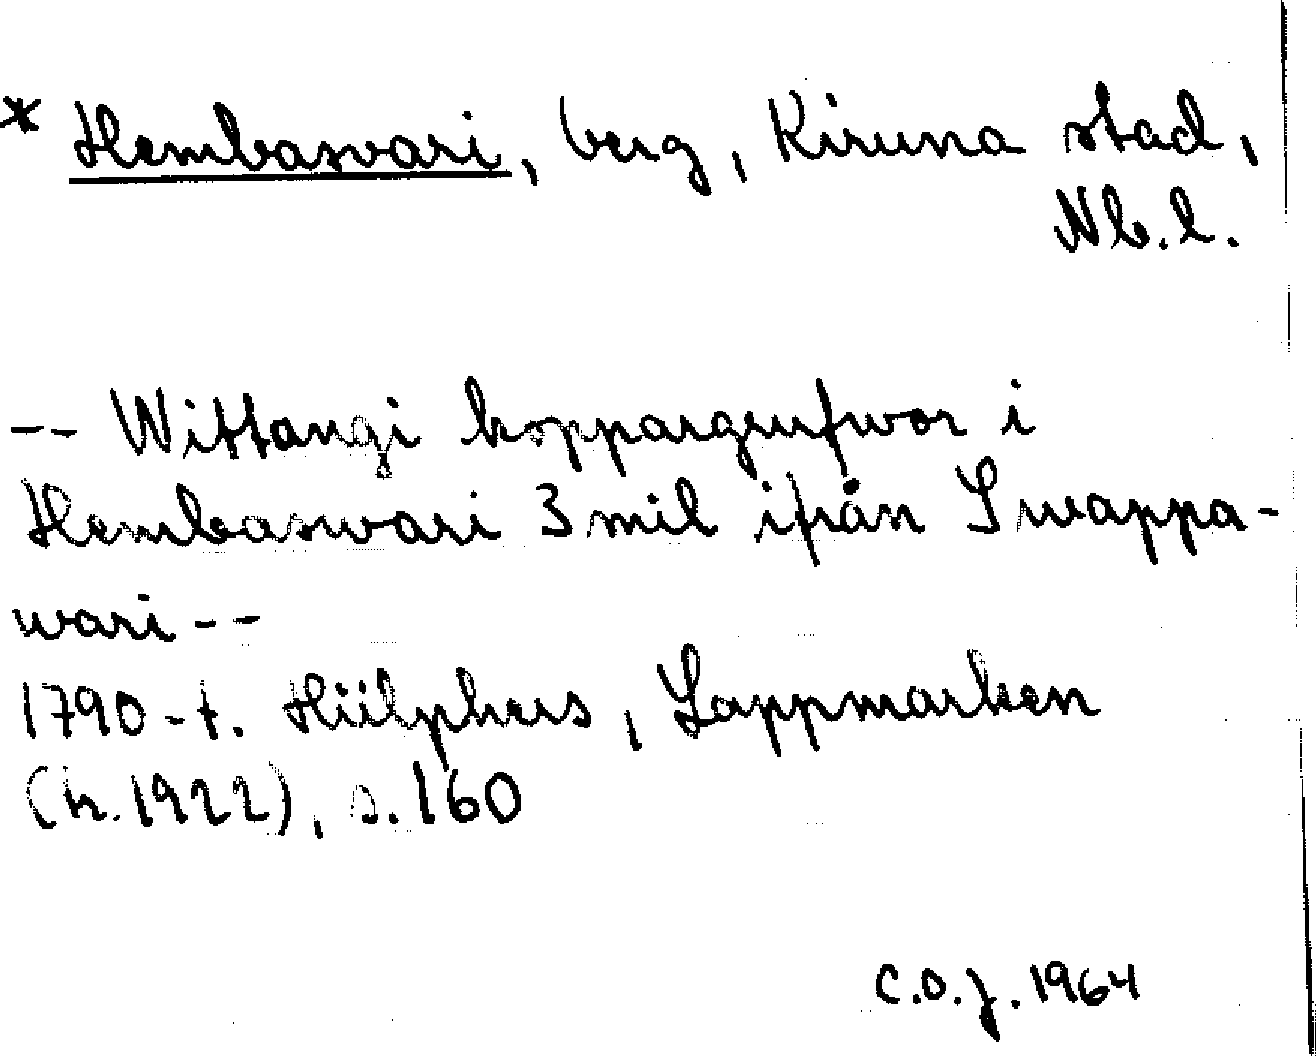 * Hembasvari, berg, Kiruna stad,
Nb.l.
-- Wittangi koppargrufwor i
Hembaswari 3 mil ifrån Swappa-
wari --
1790-t. Hülphers, Lappmarken
(h. 1922), s. 160
C.O.J. 1964